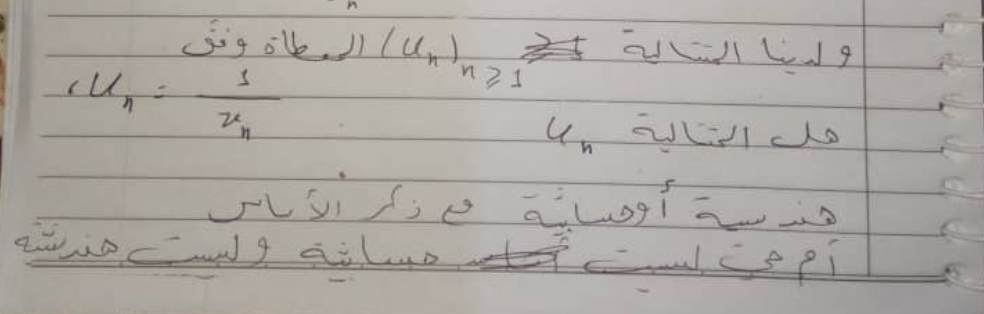 n
ولدينا المتتالية (u_n)_{n≥1} المعطاة وفق
، u_n = 1/x_n
هل المتتالية u_n
هندسية أوحسابية مع ذكر الأساس
أم هي ليست حسابية وليست هندسية